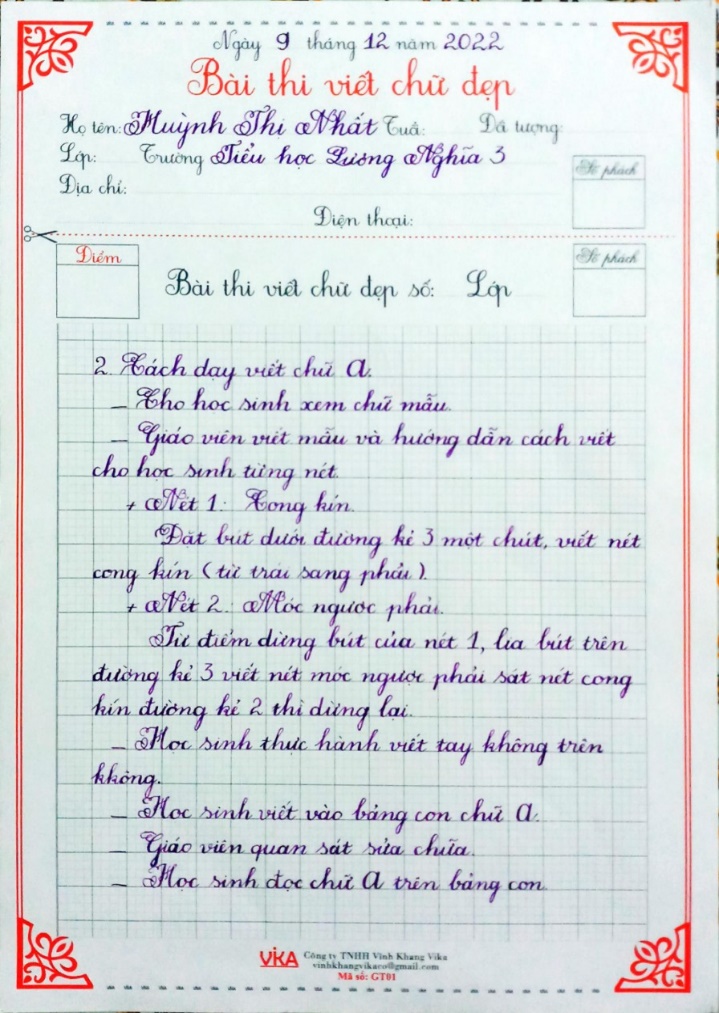 Ngày 9 tháng 12 năm 2022
Bài thi viết chữ đẹp
Họ tên: Huỳnh Thị Nhất Tuổi: Đối tượng:
Lớp: Trường Tiểu học Lương Nghĩa 3
Địa chỉ:
Số phách
Điện thoại:
Điểm
Số phách
Bài thi viết chữ đẹp số: Lớp
2. Cách dạy viết chữ a.
_ Cho học sinh xem chữ mẫu.
_ Giáo viên viết mẫu và hướng dẫn cách viết
cho học sinh từng nét.
+ Nét 1: Cong kín.
Đặt bút dưới đường kẻ 3 một chút, viết nét
cong kín (từ trái sang phải).
+ Nét 2: Móc ngược phải.
Từ điểm dừng bút của nét 1, lia bút trên
đường kẻ 3 viết nét móc ngược phải sát nét cong
kín đường kẻ 2 thì dừng lại.
_ Học sinh thực hành viết tay không trên
không.
_ Học sinh viết vào bảng con chữ a.
_ Giáo viên quan sát sửa chữa.
_ Học sinh đọc chữ a trên bảng con.
VIKA Công ty TNHH Vĩnh Khang Vika
vinhkhangvikaco@gmail.com
Mã số: GT01